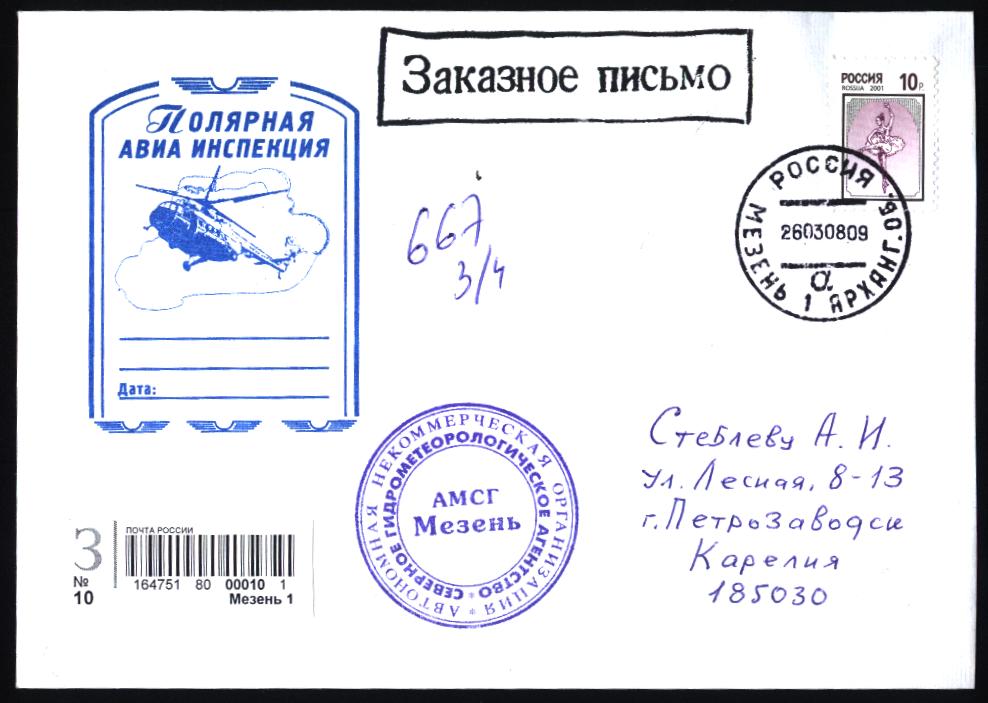 Заказное письмо
РОССИЯ 10 Р.
ROSSIJA 2001
ПОЛЯРНАЯ
АВИА ИНСПЕКЦИЯ
Дата:
667
3/4
РОССИЯ
26030809
МЕЗЕНЬ 1 АРХАНГ. ОБ.
а
АВТОНОМНАЯ НЕКОММЕРЧЕСКАЯ ОРГАНИЗАЦИЯ *
СЕВЕРНОЕ ГИДРОМЕТЕОРОЛОГИЧЕСКОЕ АГЕНТСТВО *
АМСГ
Мезень
Стеблеву А. И.
Ул. Лесная, 8-13
г. Петрозаводск
Карелия
185030
З
№
10
ПОЧТА РОССИИ
164751 80 00010 1
Мезень 1